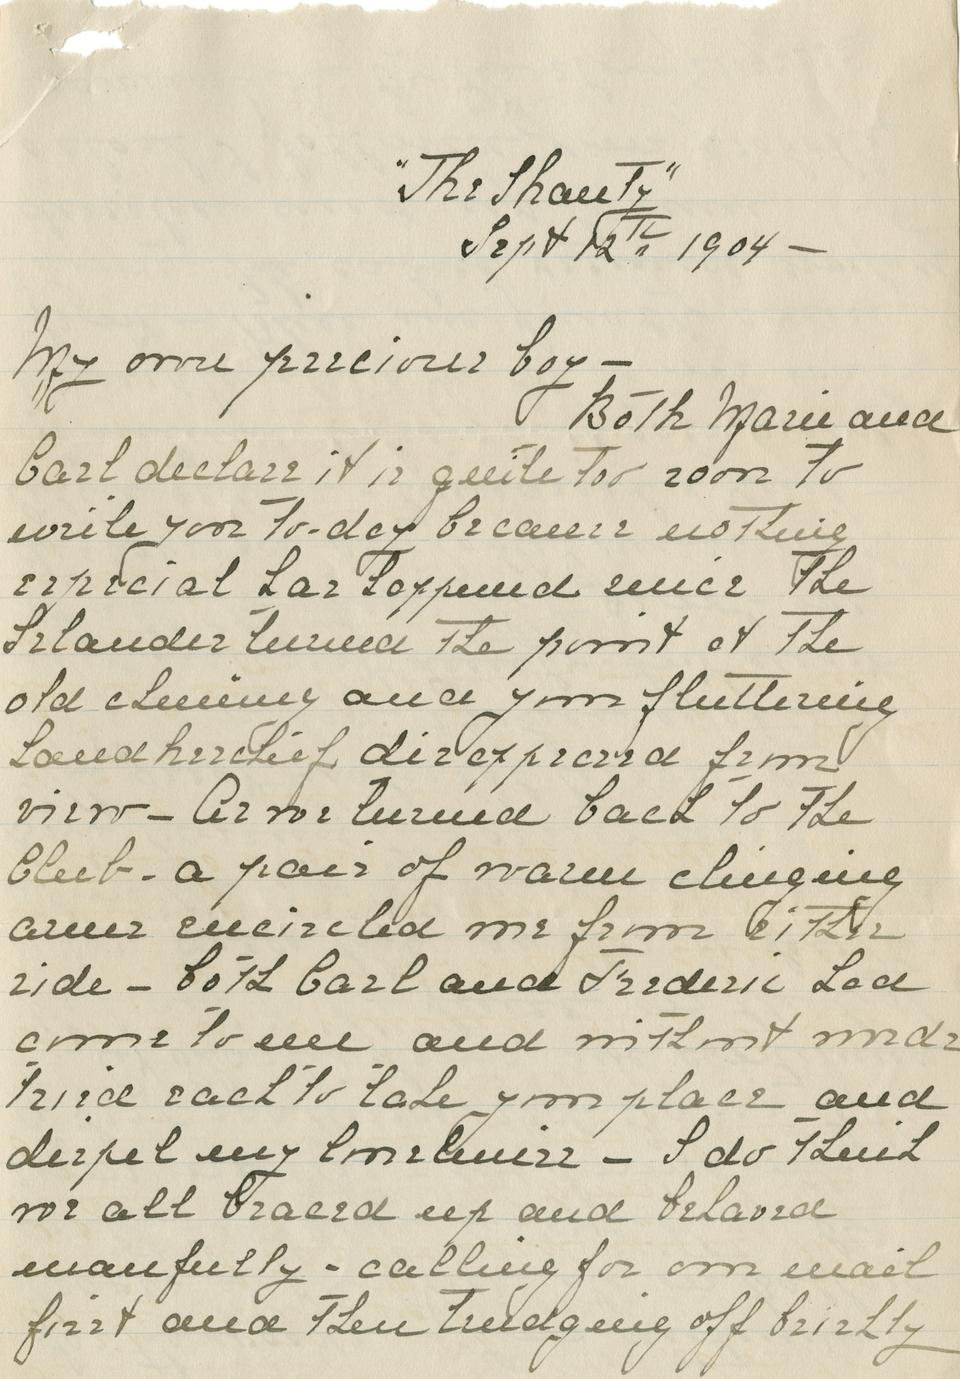 "The Shanty"
Sept 12th 1904 –
My own precious boy –
Both Marie and
Carl declare it is quite too soon to
write you to-day because nothing
especial has happened since the
Islander turned the point at the
old chimney and your fluttering
handkerchief disappeared from
view – As we turned back to the
Club - a pair of warm clinging
arms encircled me from either
side – both Carl and Frederic had
come to me and without words
tried each to take your place and
dispel my loneliness – I do think
we all braced up and behaved
manfully - calling for our mail
first and then trudging off briskly